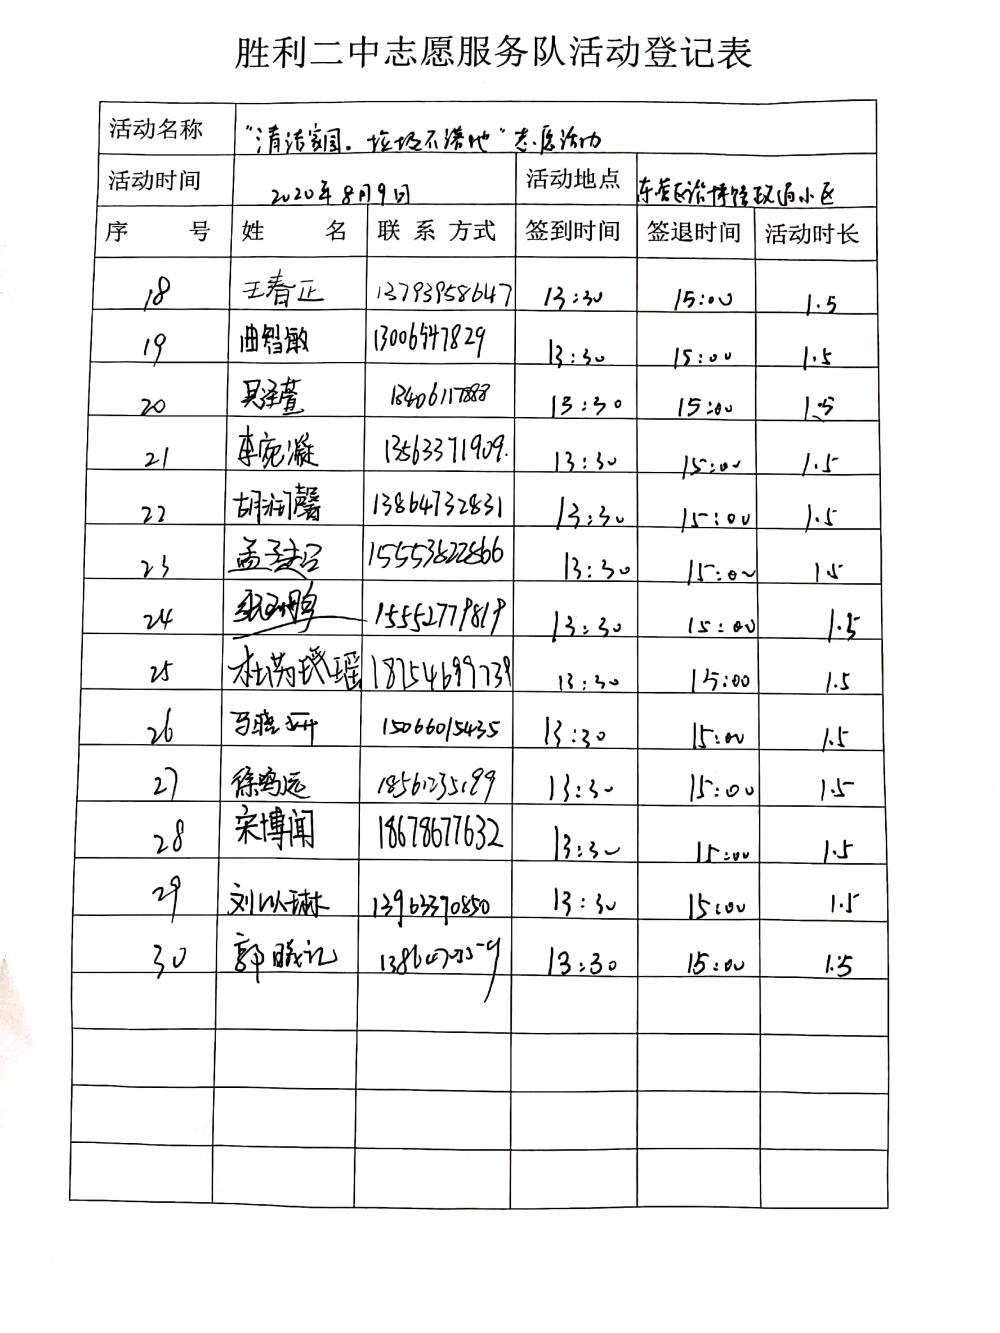 胜利二中志愿服务队活动登记表
活动名称 "清洁家园。垃圾不落地"志愿活动
活动时间 2020年8月9日 活动地点 东营区 小区
序号 姓名 联系方式 签到时间 签退时间 活动时长
18 王春正 13793958647 13:30 15:00 1.5
19 曲智敏 13006547829 13:30 15:00 1.5
20 吴泽萱 13406117888 13:30 15:00 1.5
21 李宛凝 13563371909. 13:30 15:00 1.5
22 胡润馨 13864732831 13:30 15:00 1.5
23 孟子 15553822866 13:30 15:00 1.5
24 15552779819 13:30 15:00 1.5
25 杜芮瑶 18254699739 13:30 15:00 1.5
26 马晓妍 15066015435 13:30 15:00 1.5
27 徐鸣远 18561235199 13:30 15:00 1.5
28 宋博闻 18678677632 13:30 15:00 1.5
29 刘以琳 13963370850 13:30 15:00 1.5
30 郭 13:30 15:00 1.5